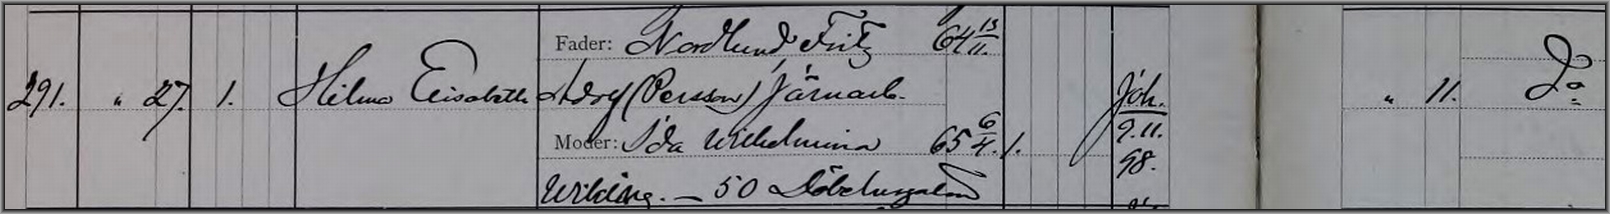 Fader: Nordlund Fritz 64 13/11.
291. " 27. 1. Hilma Elisabeth Adolf (Persson) Järnarb. Joh. " 11. Do
Moder: Ida Wilhelmina 65 6/4. 1. 9.11.
98.
Wiking. — 50 Döbelnsgatan